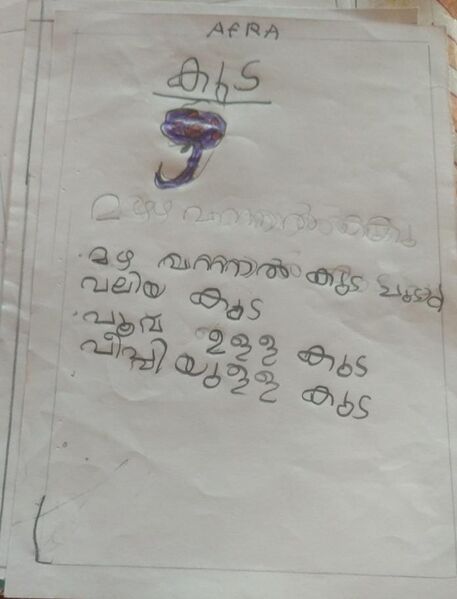 AFRA
കുട
മഴ വന്നാൽ
മഴ വന്നാൽ കുട
വലിയ കുട
പൂവ് ഉള്ള കുട
പീപ്പിയുള്ള കുട